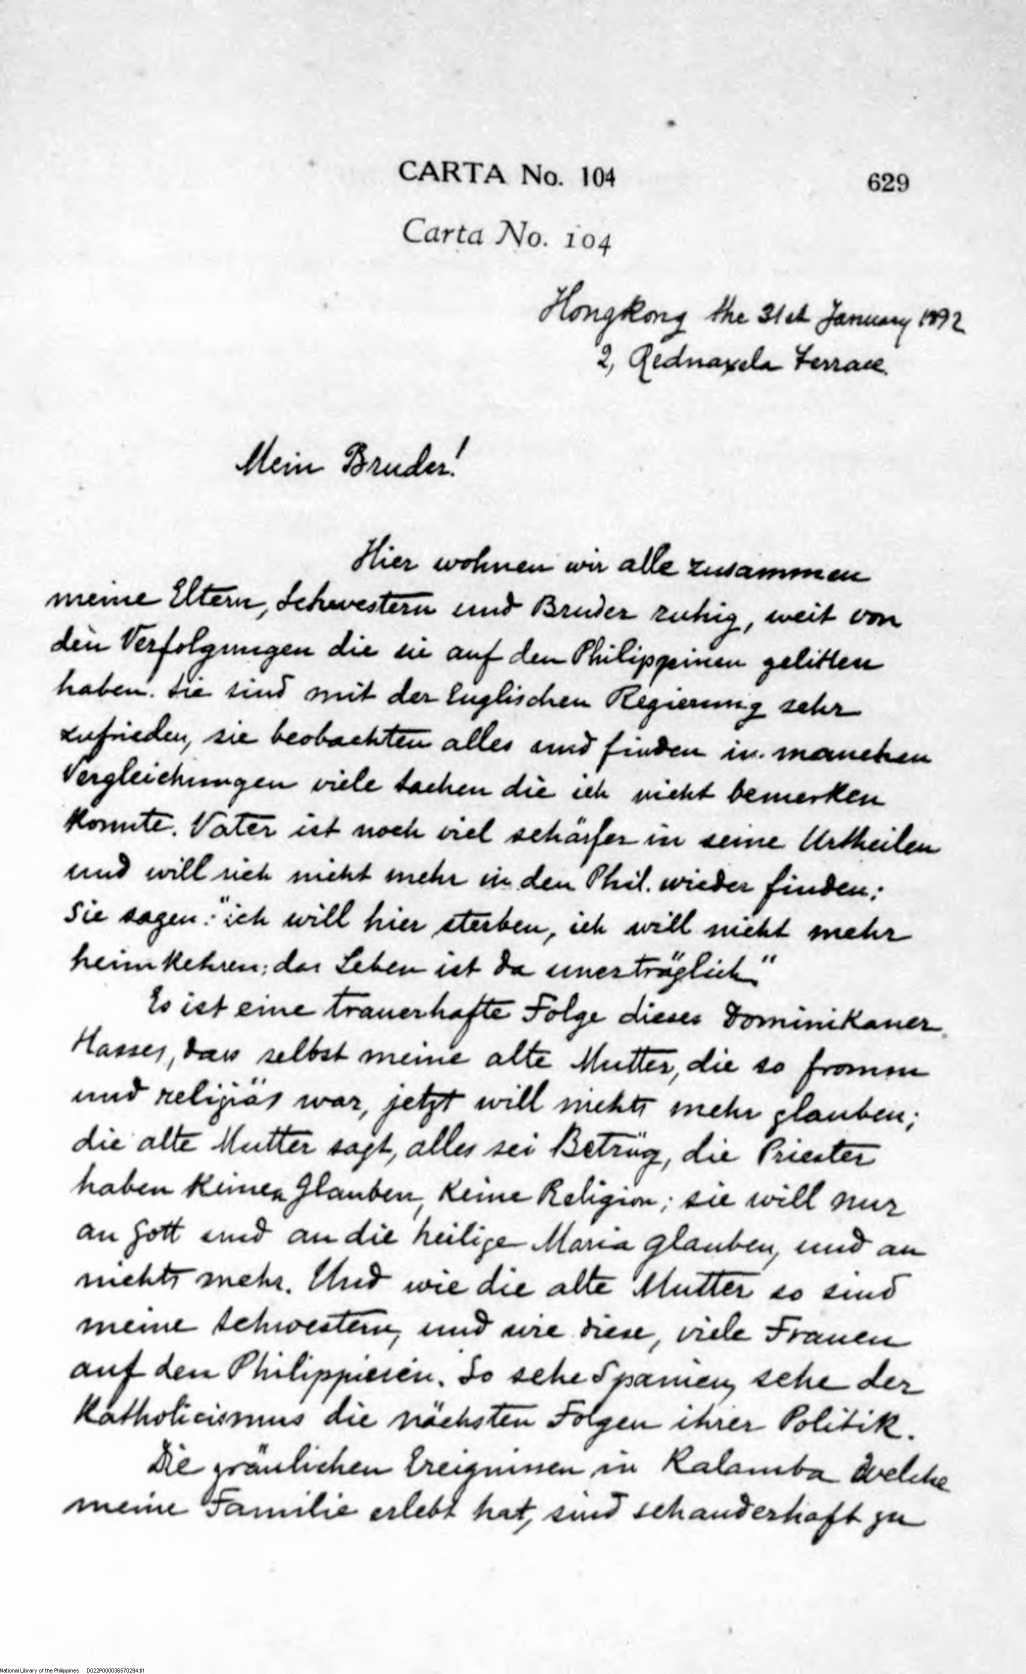 CARTA No. 104
629
Carta No. 104
Hongkong the 31st January 1892
2, Rednaxela Terrace.
Mein Bruder!
Hier wohnen wir alle zusammen
meine Eltern, Schwestern und Bruder ruhig, weit von
den Verfolgungen die sie auf den Philippinen gelitten
haben. Sie sind mit der Englischen Regierung sehr
zufrieden, sie beobachten alles und finden in manchen
Vergleichungen viele Sachen die ich nicht bemerken
konnte. Vater ist noch viel schärfer in seine Urtheilen
und will sich nicht mehr in den Phil. wieder finden;
Sie sagen: "ich will hier sterben, ich will nicht mehr
heimkehren; das Leben ist da unerträglich"
Es ist eine trauerhafte Folge dieses Dominikaner
Hasses, dass selbst meine alte Mutter, die so fromm
und religiös war, jetzt will nichts mehr glauben;
die alte Mutter sagt, alles sei Betrüg, die Priester
haben keinen Glauben, keine Religion; sie will nur
an Gott und an die heilige Maria glauben, und an
nichts mehr. Und wie die alte Mutter so sind
meine Schwestern, und wie diese, viele Frauen
auf den Philippinen. So sehe Spanien, sehe der
Katholicismus die nächsten Folgen ihrer Politik.
Die gräulichen Ereignissen in Kalamba welche
meine Familie erlebt hat, sind schauderhaft zu
National Library of the Philippines